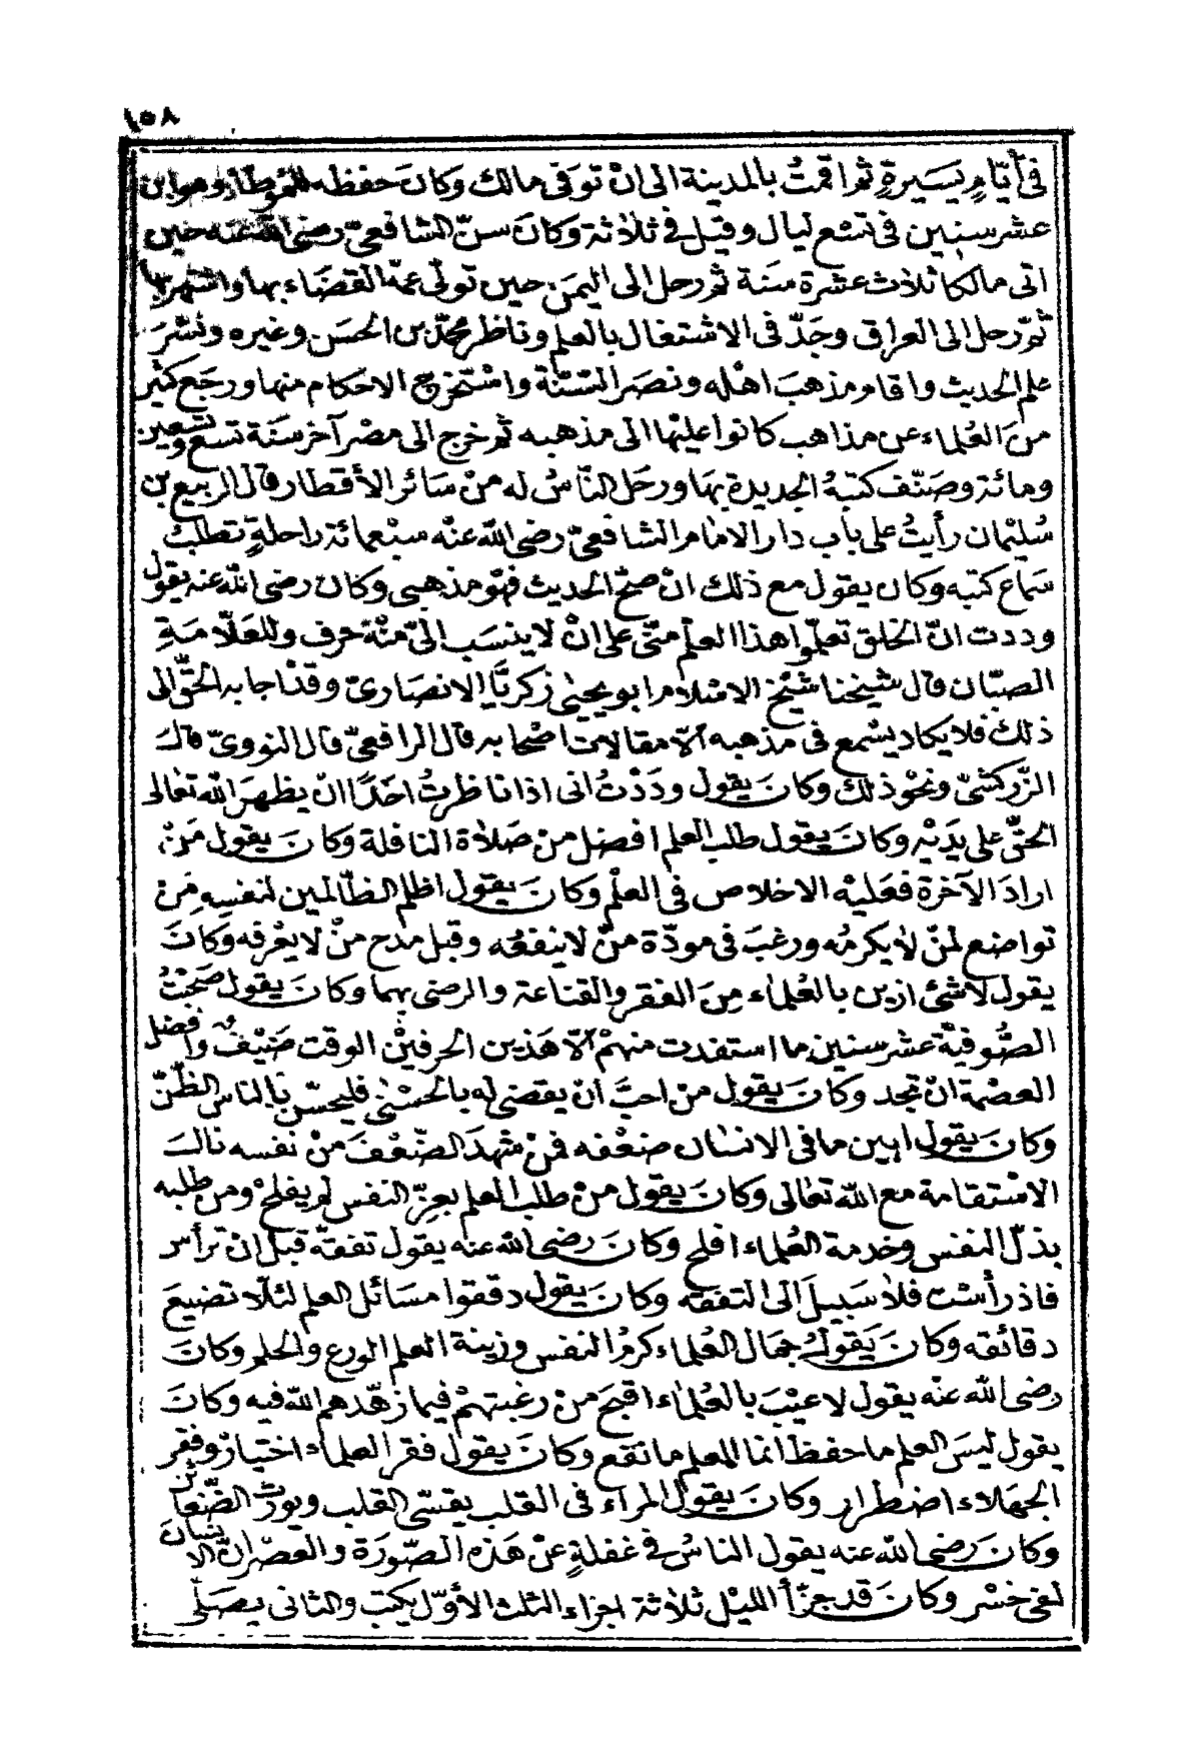 ١٥٨
فى أيّامٍ يَسيرةٍ ثم اقمتُ بالمدينة الى انْ توفى مالك وكانَ حفظه للموطأ وهو ابن
عشر سنين فى تسْع ليال وقيل فى ثلاثة وكانَ سنّ الشافعىّ رضى الله عنه حين
اتى مالكا ثلاث عشرة سَنة ثم رحل الى اليمن حين تولّى عمّه القضَاء بها واشتهر بها
ثمّ رحل الى العراق وجَدّ فى الاشتغال بالعلم وناظر محمّد بن الحسَن وغيره ونشَرَ
علم الحديث واقام مذهبَ اهْله ونصَر السّنّة واسْتخرج الاحكام منها ورجَع كثير
منَ العُلماء عن مذاهب كانوا عليْها الى مذهبه ثم خرج الى مصْر آخر سَنَة تسع وتسعين
ومائة وصَنّف كتبهُ الجديدة بهَا ورحَل النّاسُ له منْ سَائر الأقطار قال الربيع بن
سُليْمان رأيتُ على باب دار الامَام الشافعىّ رضى الله عنْه سبْعمائة راحلةٍ تطلب
سَماع كتبه وكان يقول مع ذلك انْ صحّ الحديث فهْو مذهبى وكان رضى الله عنه يقول
وددت انّ الخلق تعلّموا هذا العلْم منّى على انْ لا ينسَب الىّ منْه حرف وللعَلّامَةِ
الصبّان قال شيخنا شيْخ الاسْلام ابو يحيىٰ زكريَّا الانصَارىّ وقدْ اجابه الحقّ الى
ذلك فلا يكاد يسْمع فى مذهبه الّا مقالات اصْحابه قال الرافعىّ قال النووىّ قال
الزّركشىّ ونحْو ذلك وكانَ يقول ودَدْتُ انى اذا ناظرتُ احَدًا انْ يظهرَ الله تعَالى
الحقّ على يدَيْه وكانَ يقول طلب العلم افضل منْ صَلاة النافلة وكانَ يقول مَنْ
ارادَ الآخرة فعَليْه الاخلاص فى العلْم وكانَ يقول اظلم الظّالمين لنفسِه مَنْ
تواضع لمنْ لا يكرمُه ورغبَ فى مودّة منْ لا ينفعُه وقبل مَدح منْ لا يعْرفه وكانَ
يقول لا شئ ازين بالعُلماء مِنَ الفقر والقناعة والرضى بهما وكانَ يقول صَحبْتُ
الصُّوفيّة عشر سنين ما استفدت منهمْ الّا هَذين الحرفيْن الوقت سَيْفٌ وافضل
العصْمة انْ تجد وكانَ يقول منْ احبَّ انْ يقضى له بالحسْنىٰ فليحسّن بالناس الظنّ
وكانَ يقول ابين ما فى الانسَان ضعْفه فمنْ شهدَ الضّعْفَ منْ نفسه نالَ
الاسْتقامة مع الله تعَالى وكانَ يقول منْ طلب العلم بعِزّ النفس لم يفلحْ ومن طلبه
بذلّ النفس وخدمة العُلماء افلح وكانَ رضى الله عنه يقول تفقّه قبل انْ ترأس
فاذ رأسْت فلا سَبيلَ الى التفقّه وكانَ يقول دققوا مسَائل العلم لئلّا تضيعَ
دقائقه وكانَ يَقولُ جمَال العُلماء كرمُ النفس وزينة العلم الورع والحلم وكانَ
رضى الله عنْه يقول لا عيْبَ بالعُلمَاء اقبحَ منْ رغبتهمْ فيما زهّدهم الله فيه وكانَ
يقول ليسَ العلم ما حفظ انما العلم ما نفع وكانَ يقول فقر العلماء اختيار وفقر
الجهَلاء اضطرار وكانَ يقول المراء فى القلب يقسّى القلب ويورث الضّغائن
وكانَ رضى الله عنه يقول الناسُ فى غفلةٍ عنْ هَذه السّورَة والعصْر انّ الانسَانَ
لفى خسْر وكانَ قد جزّأ الليْل ثلاثة اجزاء الثلث الأوّل يكتب والثانى يصَلّى